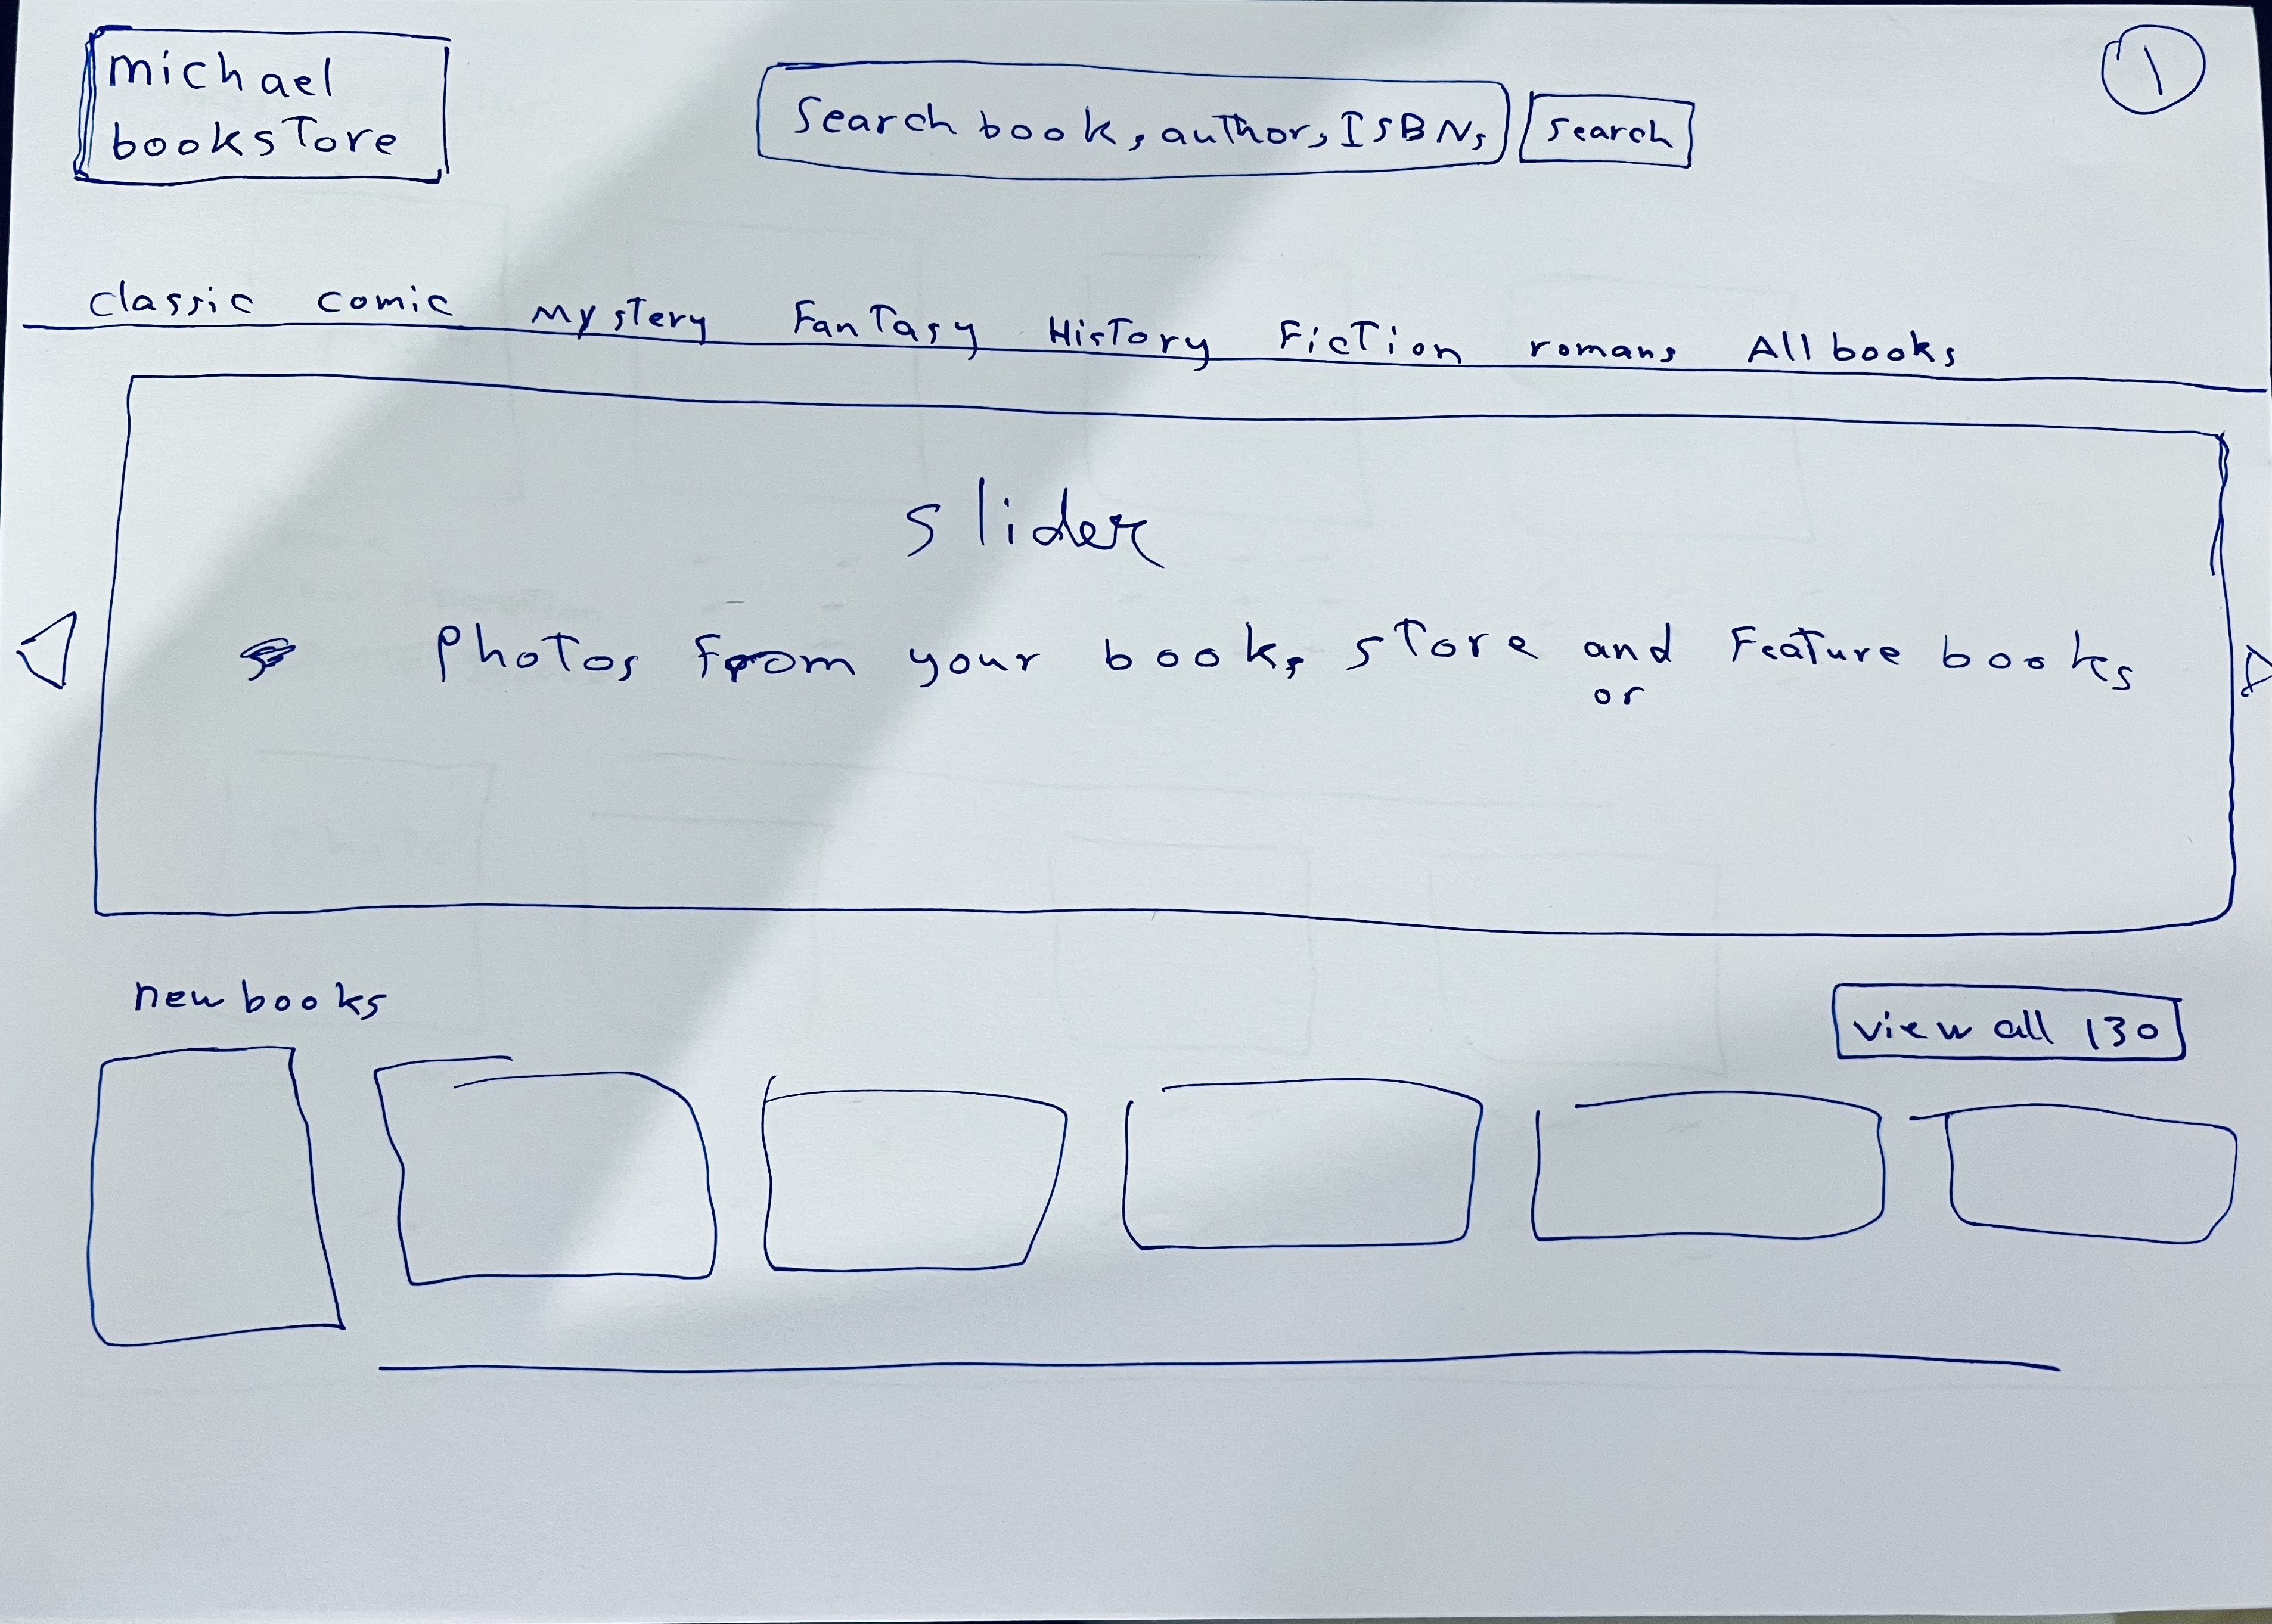 michael
bookstore
Search book, author, ISBN,
search
1
classic comic mystery Fantasy History Fiction romans All books
slider
Photos from your book, store and Feature books
or
new books
view all 130